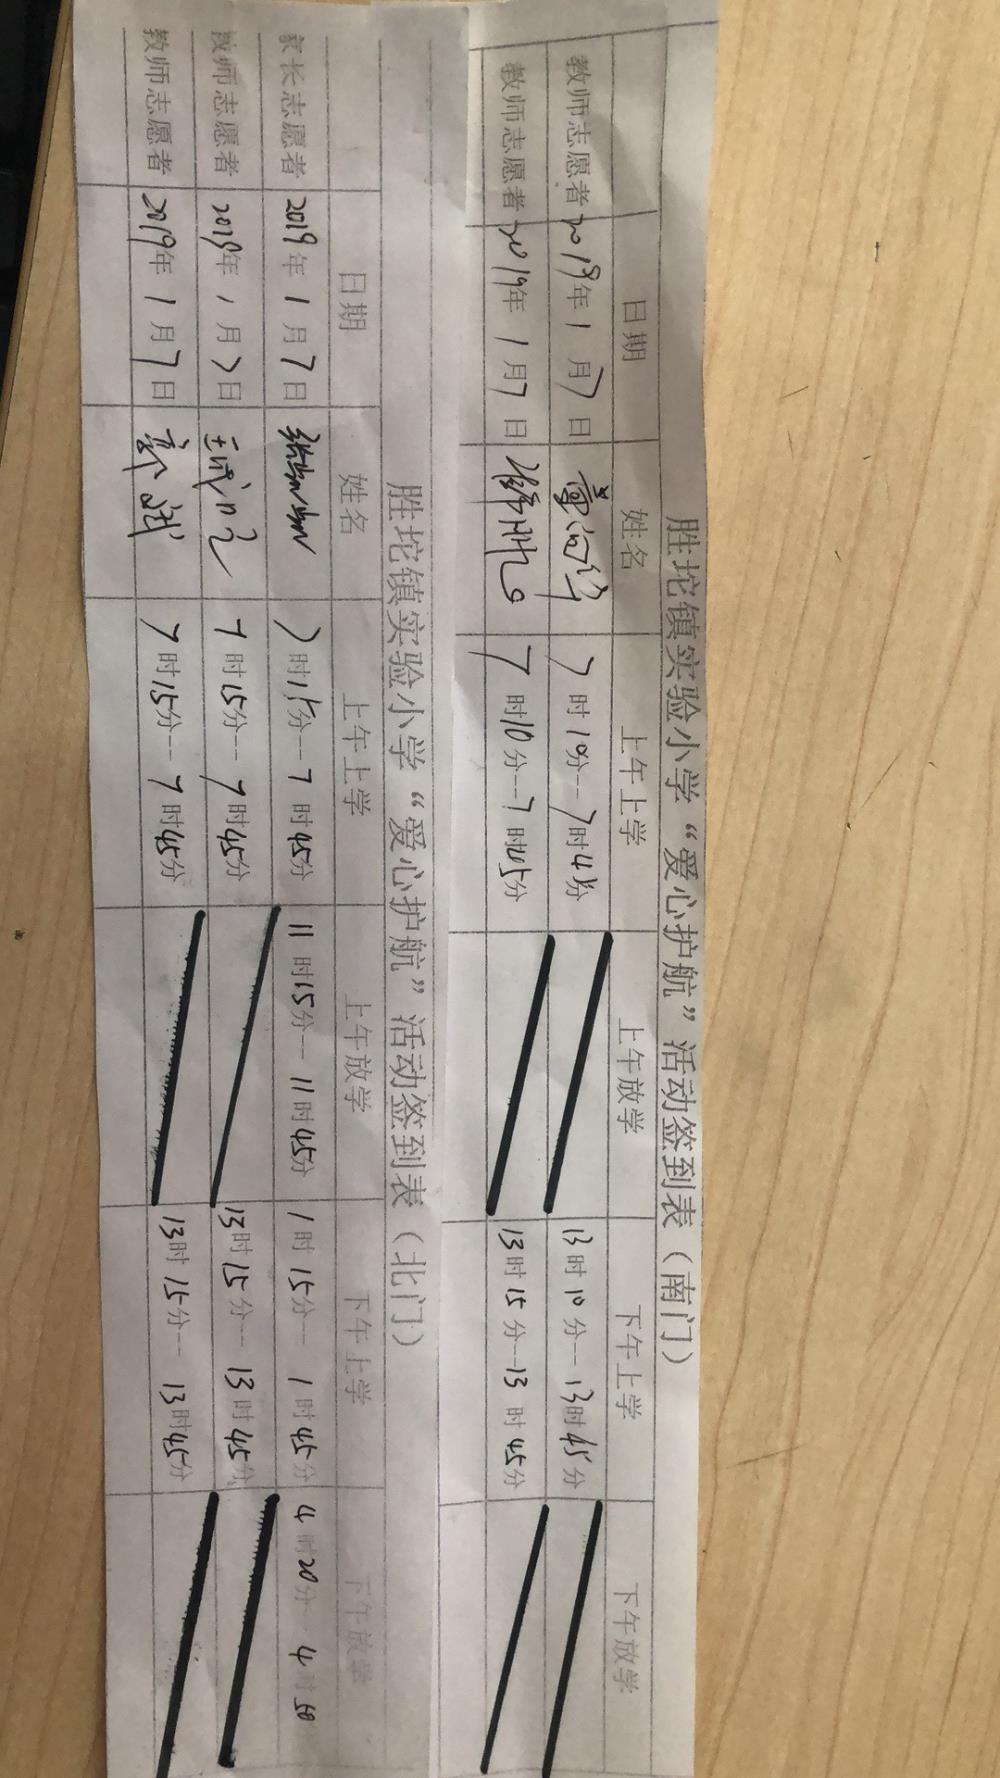 胜坨镇实验小学“爱心护航”活动签到表（南门）
日期 姓名 上午上学 上午放学 下午上学 下午放学
教师志愿者 2019年1月7日 7时10分--7时45分 13时10分--13时45分
教师志愿者 2019年1月7日 7时10分--7时45分 13时15分--13时45分
胜坨镇实验小学“爱心护航”活动签到表（北门）
日期 姓名 上午上学 上午放学 下午上学 下午放学
家长志愿者 2019年1月7日 7时15分--7时45分 11时15分--11时45分 1时15分--1时45分 4时20分 4时50
教师志愿者 2019年1月7日 7时15分--7时45分 13时15分--13时45分
教师志愿者 2019年1月7日 郭斌 7时15分--7时45分 13时15分--13时45分